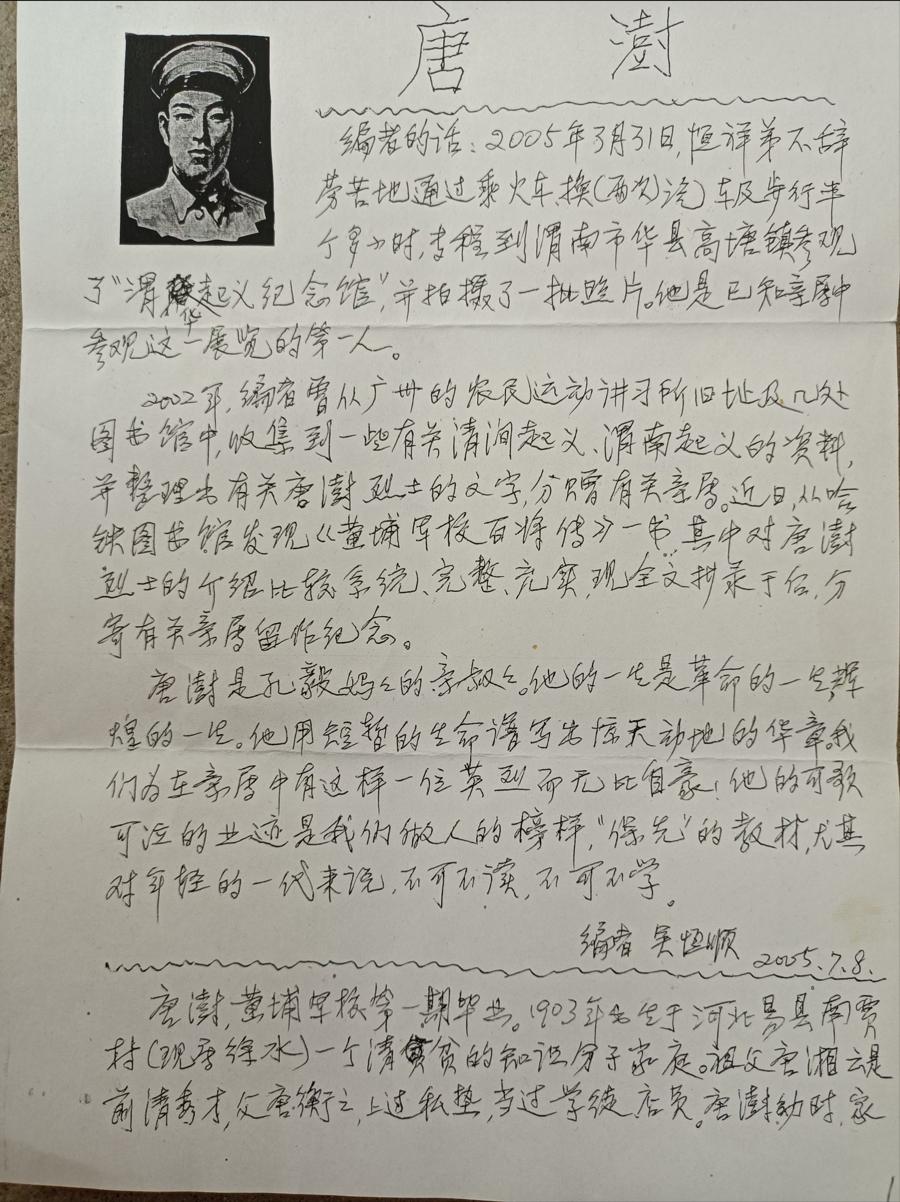 唐 澍
编者的话：2005年3月31日，恒祥弟不辞
劳苦地通过乘火车换（两次）汽车及步行半
个多小时，专程到渭南市华县高塘镇参观
了“渭华起义纪念馆”，并拍摄了一批照片。他是已知亲属中
参观这一展览的第一人。
2002年，编者曾从广州的农民运动讲习所旧址及几处
图书馆中，收集到一些有关清涧起义、渭南起义的资料，
并整理出有关唐澍烈士的文字，分赠有关亲属。近日，从哈
铁图书馆发现《黄埔军校百将传》一书，其中对唐澍
烈士的介绍比较系统、完整、充实，现全文抄录于后，分
寄有关亲属留作纪念。
唐澍是孔毅妈々的亲叔々。他的一生是革命的一生，辉
煌的一生。他用短暂的生命谱写出惊天动地的华章。我
们为在亲属中有这样一位英烈而无比自豪！他的可歌
可泣的业迹是我们做人的榜样，“保先”的教材，尤其
对年轻的一代来说，不可不读，不可不学。
编者 吴恒顺 2005.7.8.
唐澍，黄埔军校第一期毕业。1903年出生于河北易县南贾
村（现属徐水）一个清贫的知识分子家庭。祖父唐湘云是
前清秀才，父唐衡之，上过私塾，当过学徒、店员。唐澍幼时，家
1